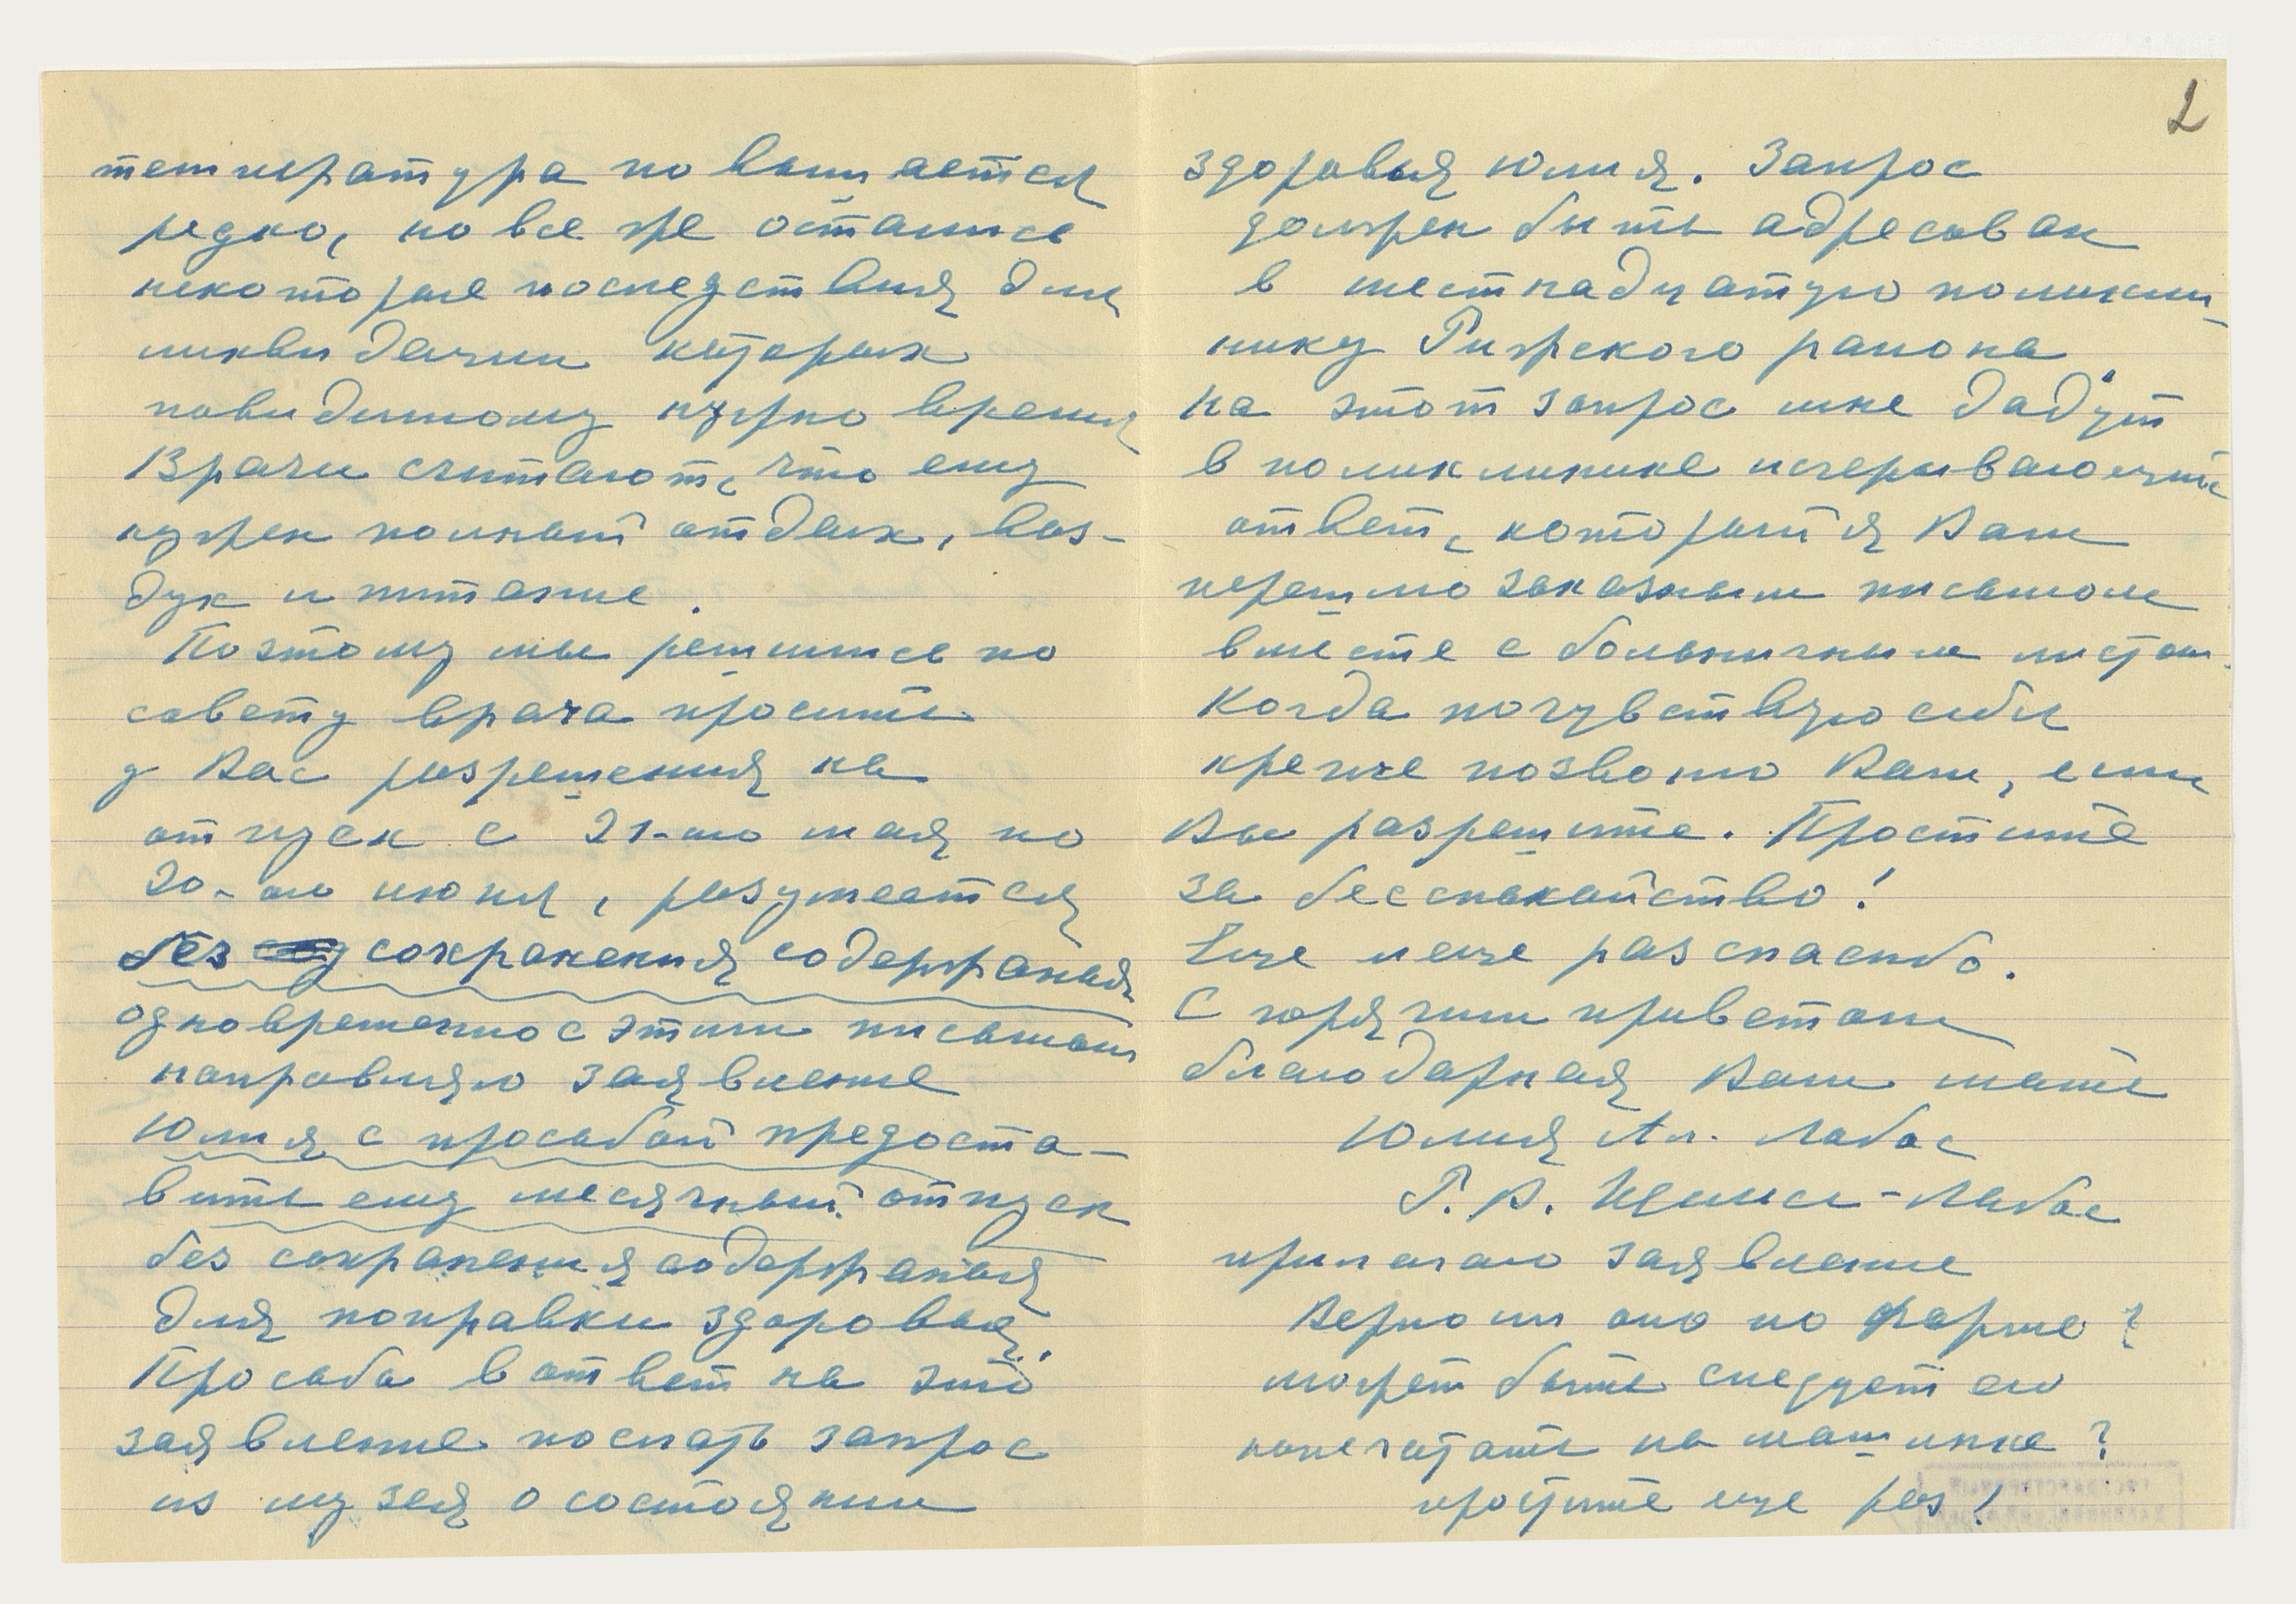 температура повышается
редко, но все же остались
некоторые последствия для
ликвидации которых
повидимому нужно время
Врачи считают, что ему
нужен полный отдых, воз-
дух и питание.
Поэтому мы решились по
совету врача просить
у Вас разрешения на
отпуск с 21-го мая по
20-ого июня, разумеется
без сохранения содержания
одновременно с этим письмом
направляю заявление
Юлия с просьбой предоста-
вить ему месячный отпуск
без сохранения содержания
для поправки здоровья.
Просьба в ответ на это
заявление послать запрос
из музея о состоянии
2
здоровья Юлия. Запрос
должен быть адресован
в шестнадцатую поликли-
нику Рижского района,
на этот запрос мне дадут
в поликлинике исчерпывающий
ответ, который я Вам
перешлю заказным письмом
вместе с больничным листом.
Когда почувствую себя
крепче позвоню Вам, если
Вы разрешите. Простите
за бесспокойство!
Еще и еще раз спасибо.
С горячим приветом
благодарная Вам мать
Юлия Ал. Лабас
Р. В. Лабас
прилагаю заявление
Верно ли оно по форме?
может быть следует его
напечатать на машинке?
простите еще раз!